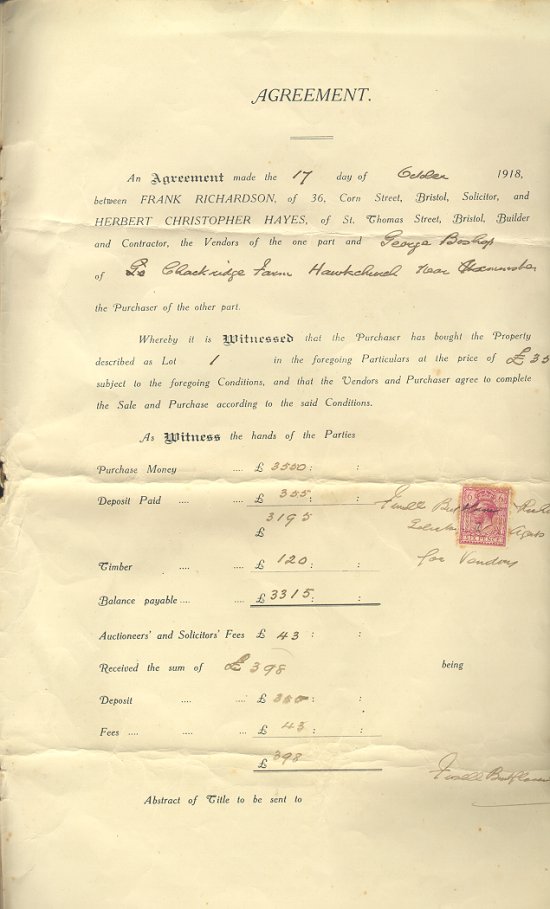 AGREEMENT.
An Agreement made the 17 day of October 1918,
between FRANK RICHARDSON, of 36, Corn Street, Bristol, Solicitor, and
HERBERT CHRISTOPHER HAYES, of St. Thomas Street, Bristol, Builder
and Contractor, the Vendors of the one part and George
of Farm Hawkchurch near
the Purchaser of the other part.
Whereby it is Witnessed that the Purchaser has bought the Property
described as Lot 1 in the foregoing Particulars at the price of £35
subject to the foregoing Conditions, and that the Vendors and Purchaser agree to complete
the Sale and Purchase according to the said Conditions.
As Witness the hands of the Parties
Purchase Money .... £ 3550 : :
Deposit Paid .... .... £ 355 : :
£ 3195
Timber .... .... £ 120 : :
for Vendors
Balance payable .... .... £ 3315 : :
Auctioneers' and Solicitors' Fees £ 43 : :
Received the sum of £ 398 being
Deposit .... .... £ : :
Fees .... .... .... £ 43 : :
£ 398
Abstract of Title to be sent to